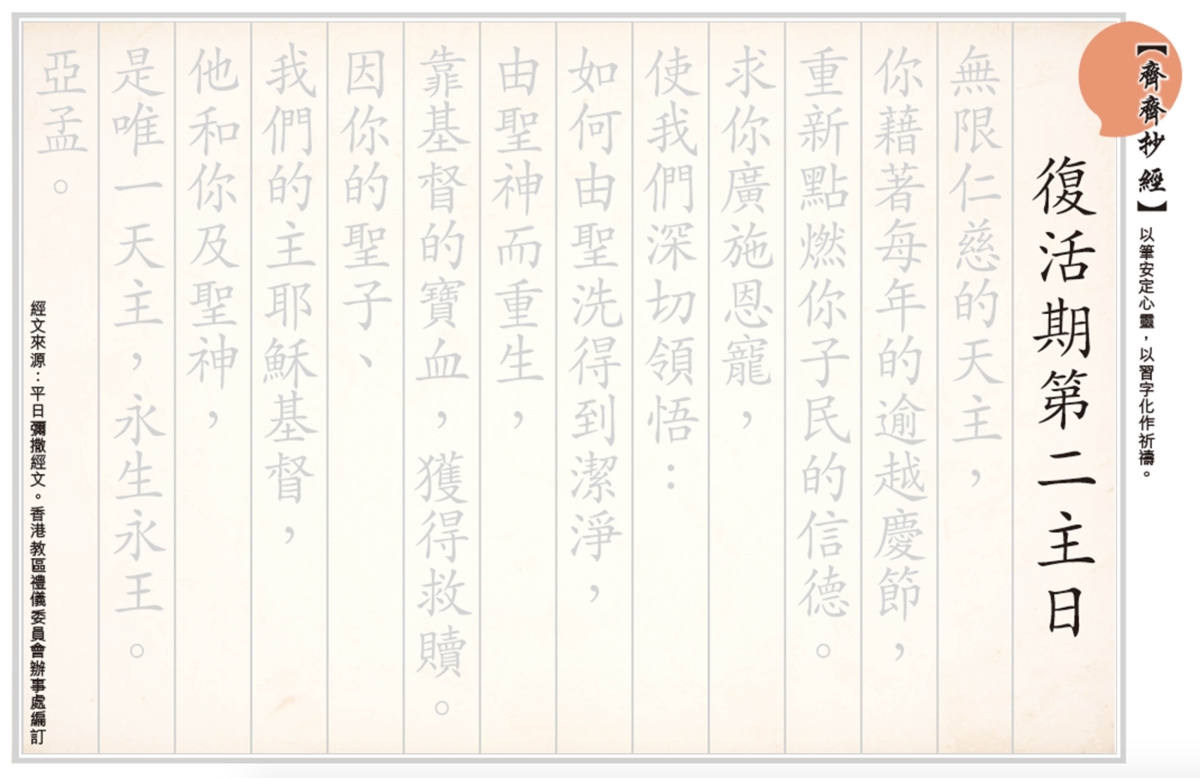 【齊齊抄經】以筆安定心靈，以習字化作祈禱。
復活期第二主日
無限仁慈的天主，
你藉著每年的逾越慶節，
重新點燃你子民的信德。
求你廣施恩寵，
使我們深切領悟：
如何由聖洗得到潔淨，
由聖神而重生，
靠基督的寶血，獲得救贖。
因你的聖子、
我們的主耶穌基督，
他和你及聖神，
是唯一天主，永生永王。
亞孟。
經文來源：平日彌撒經文。香港教區禮儀委員會辦事處編訂